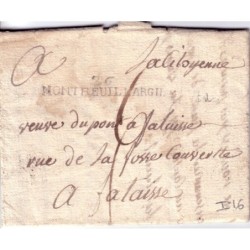 A la Citoyenne
26
MONTREUIL L'ARGIL
6
veuve dupont a falaise
rue de la fosse Couverte
a falaise
I=16